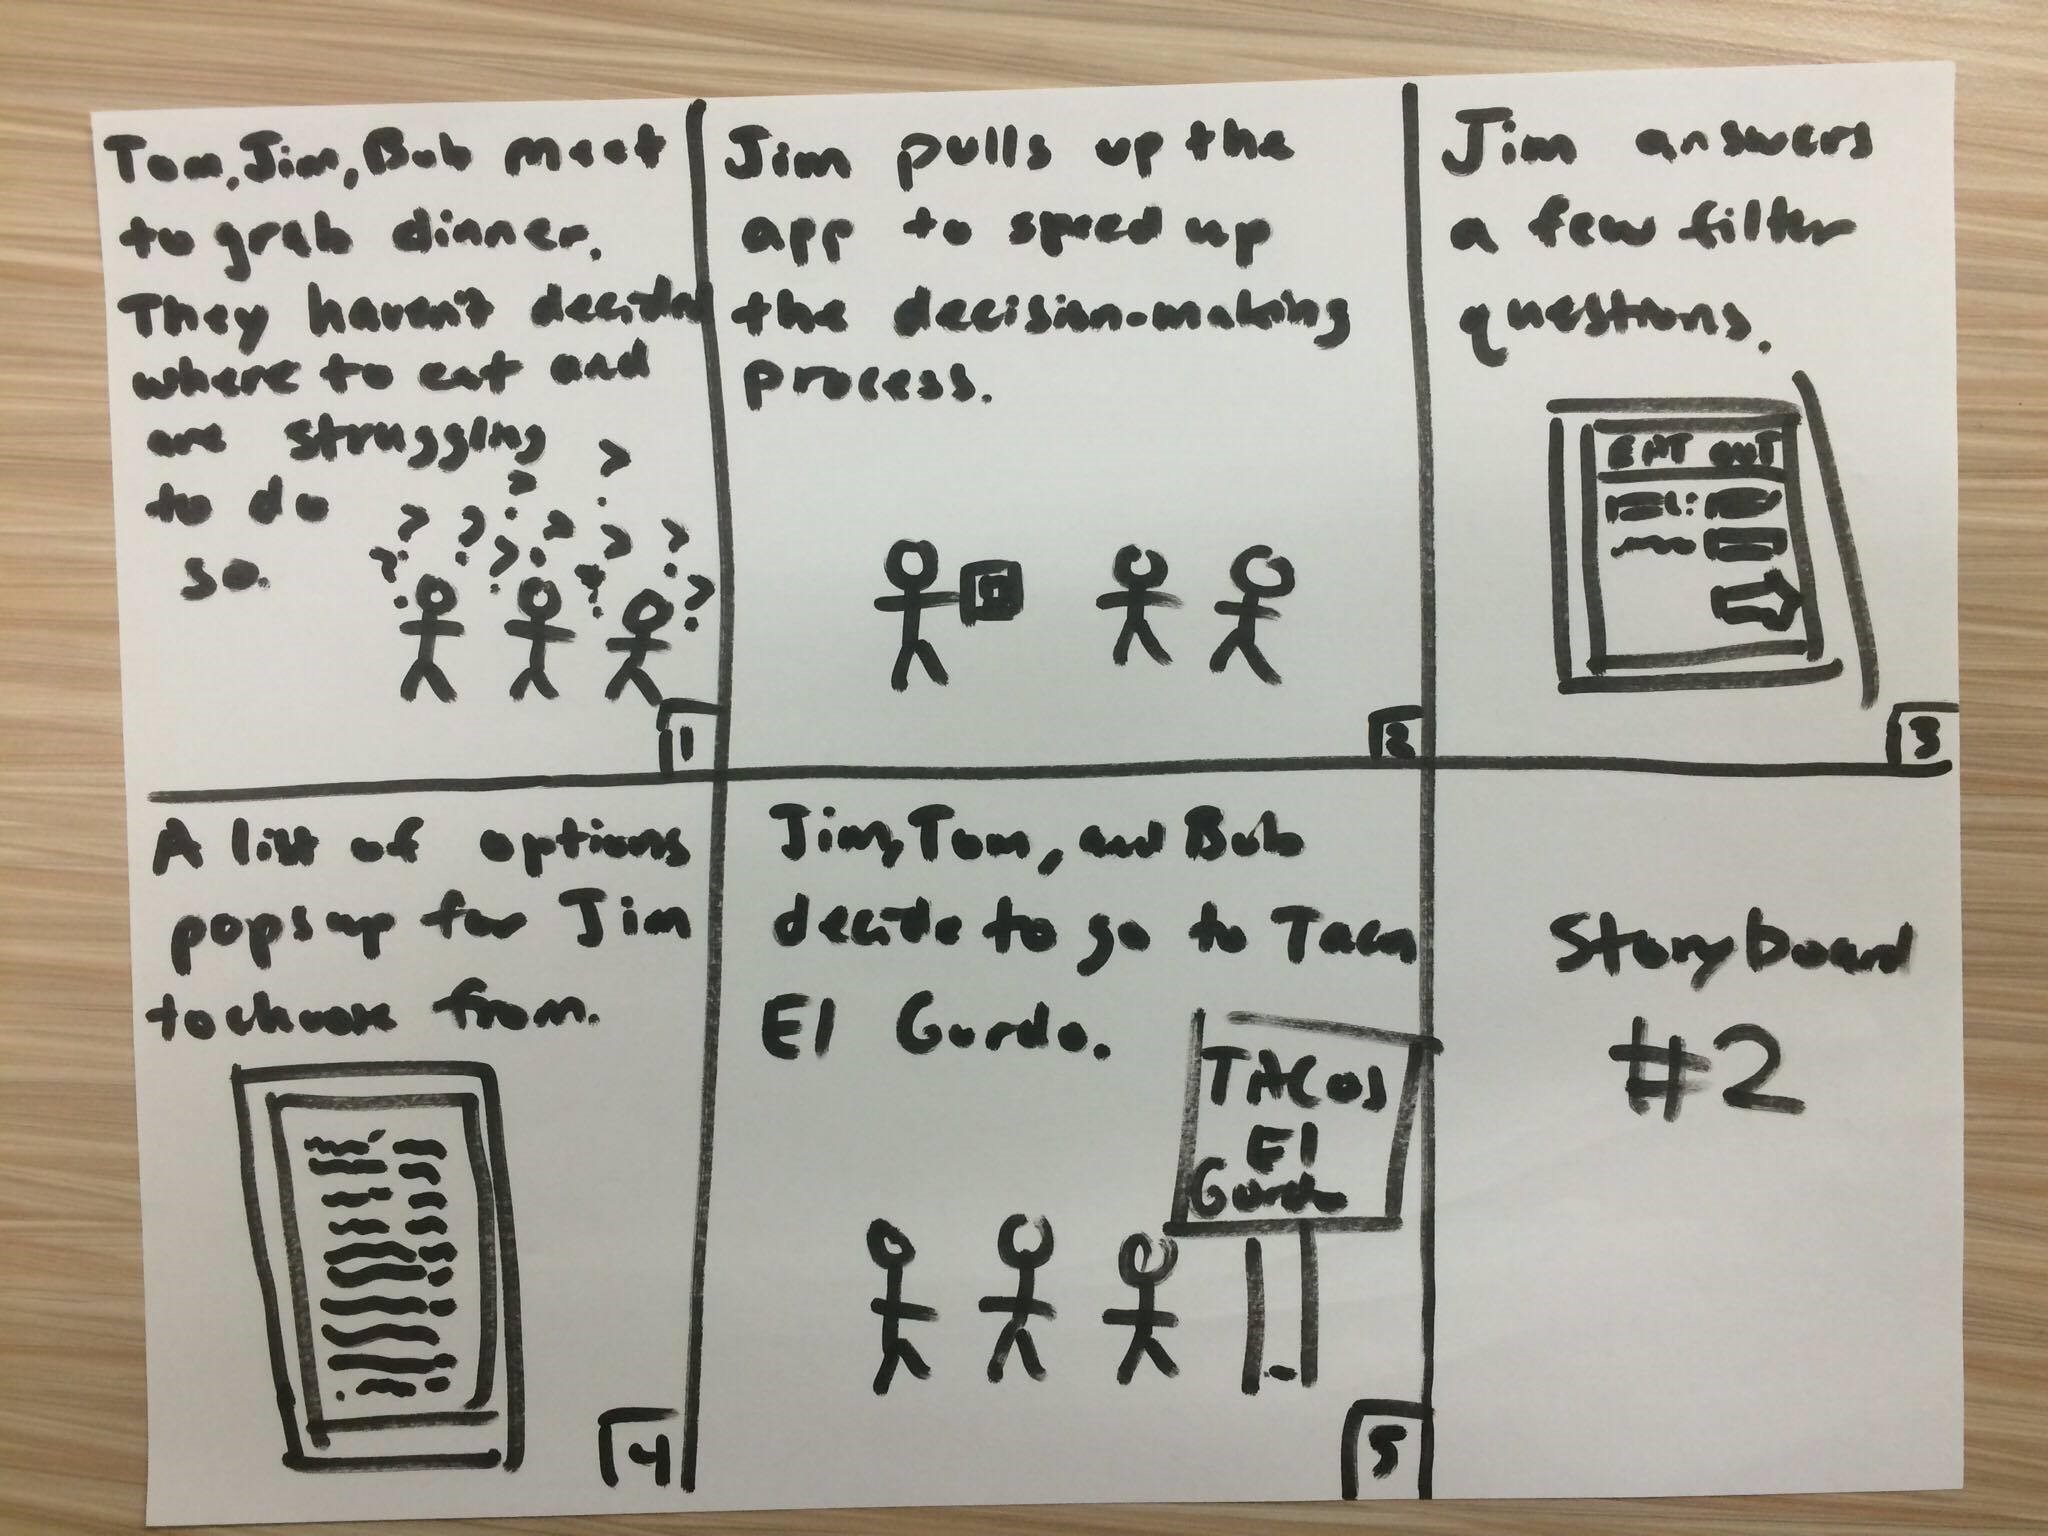 Tom, Jim, Bob meet
to grab dinner.
They haven't decided
where to eat and
are struggling
to do
so.
? ? ? ? ? ? ? ? ? ?
1
Jim pulls up the
app to speed up
the decision-making
process.
2
Jim answers
a few filter
questions.
EAT OUT
3
A list of options
pops up for Jim
to choose from.
4
Jim, Tom, and Bob
decide to go to Tacos
El Gordo.
TACOS
El
Gordo
5
Storyboard
#2